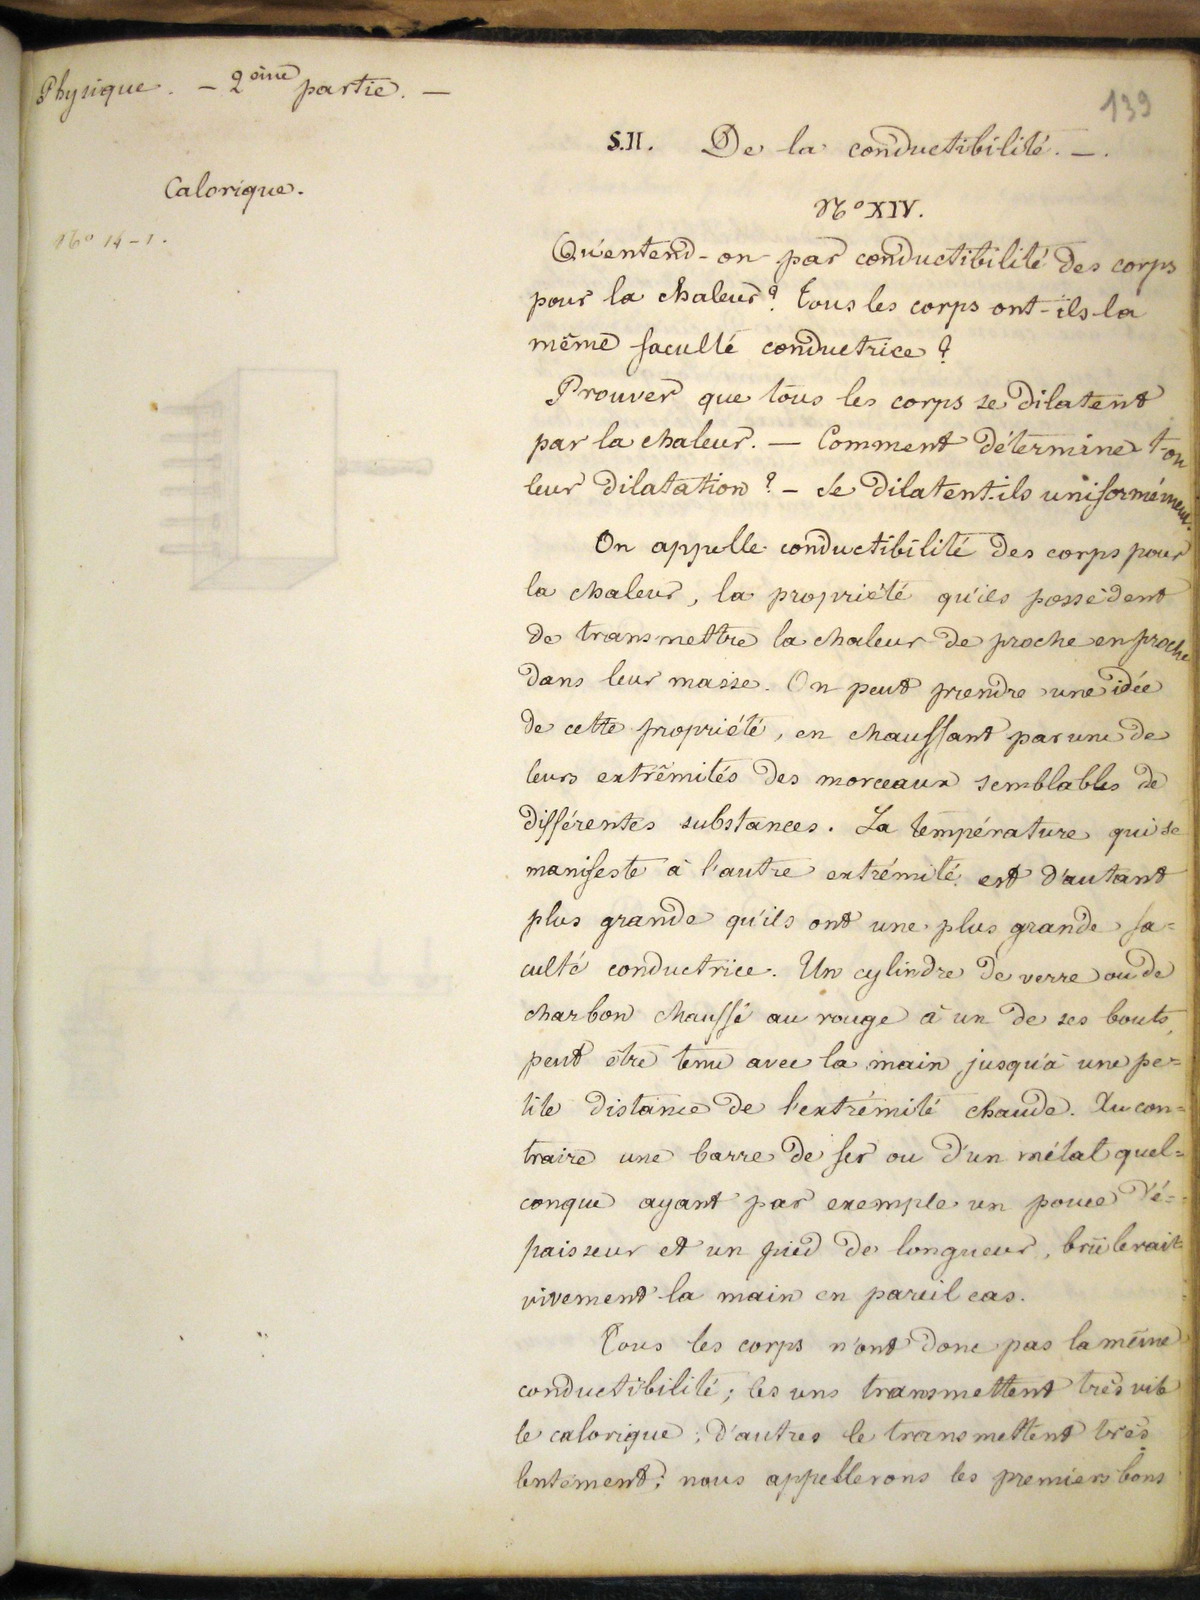 Physique. — 2ème partie. —
139
S. II. De la conductibilité. —.
Calorique.
No XIV.
No 14-1.
Qu'entend-on par conductibilité des corps
pour la chaleur? Tous les corps ont-ils la
même faculté conductrice?
Prouver que tous les corps se dilatent
par la chaleur. — Comment détermine t-on
leur dilatation? — Se dilatent-ils uniformément.
On appelle conductibilité des corps pour
la chaleur, la propriété qu'ils possèdent
de transmettre la chaleur de proche en proche
dans leur masse. On peut prendre une idée
de cette propriété, en chauffant par une de
leurs extrêmités des morceaux semblables de
différentes substances. La température qui se
manifeste à l'autre extrémité est d'autant
plus grande qu'ils ont une plus grande fa=
culté conductrice. Un cylindre de verre ou de
charbon chauffé au rouge à un de ses bouts,
peut être tenu avec la main jusqu'à une pe=
tite distance de l'extrémité chaude. Au con=
traire une barre de fer ou d'un métal quel=
conque ayant par exemple un pouce d'é=
paisseur et un pied de longueur, brûlerait
vivement la main en pareil cas.
Tous les corps n'ont donc pas la même
conductibilité; les uns transmettent très vite
le calorique; d'autres le transmettent très
lentement; nous appellerons les premiers bons